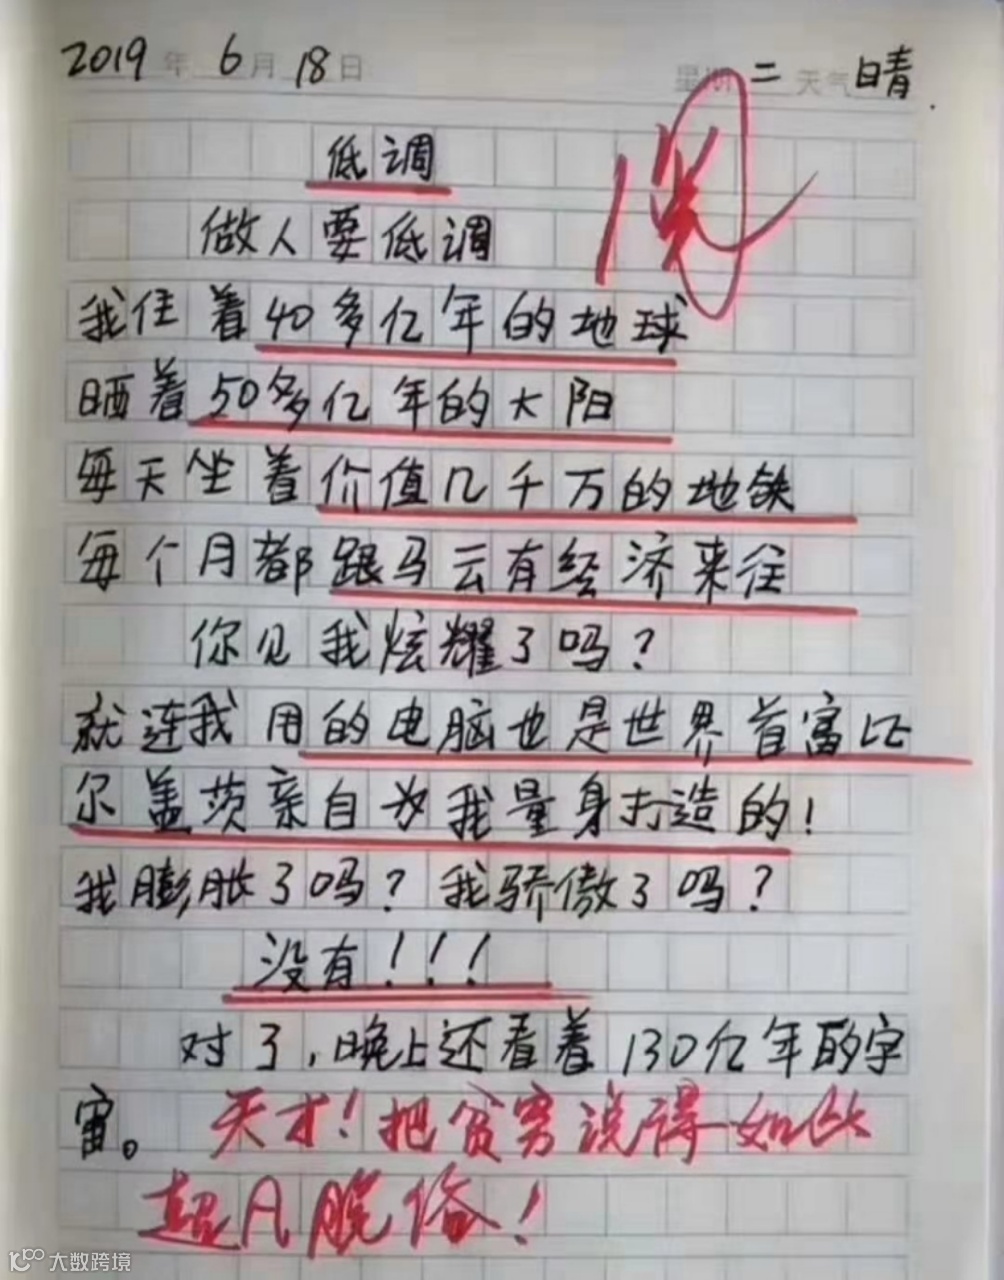 2019年6月18日 星期二 天气晴
低调
做人要低调
我住着40多亿年的地球
晒着50多亿年的大阳
每天坐着价值几千万的地铁
每个月都跟马云有经济来往
你见我炫耀了吗？
就连我用的电脑也是世界首富比
尔盖茨亲自为我量身打造的！
我膨胀了吗？我骄傲了吗？
没有！！！
对了，晚上还看着130亿年的宇
宙。天才！把贫穷说得如此
超凡脱俗！
大数跨境